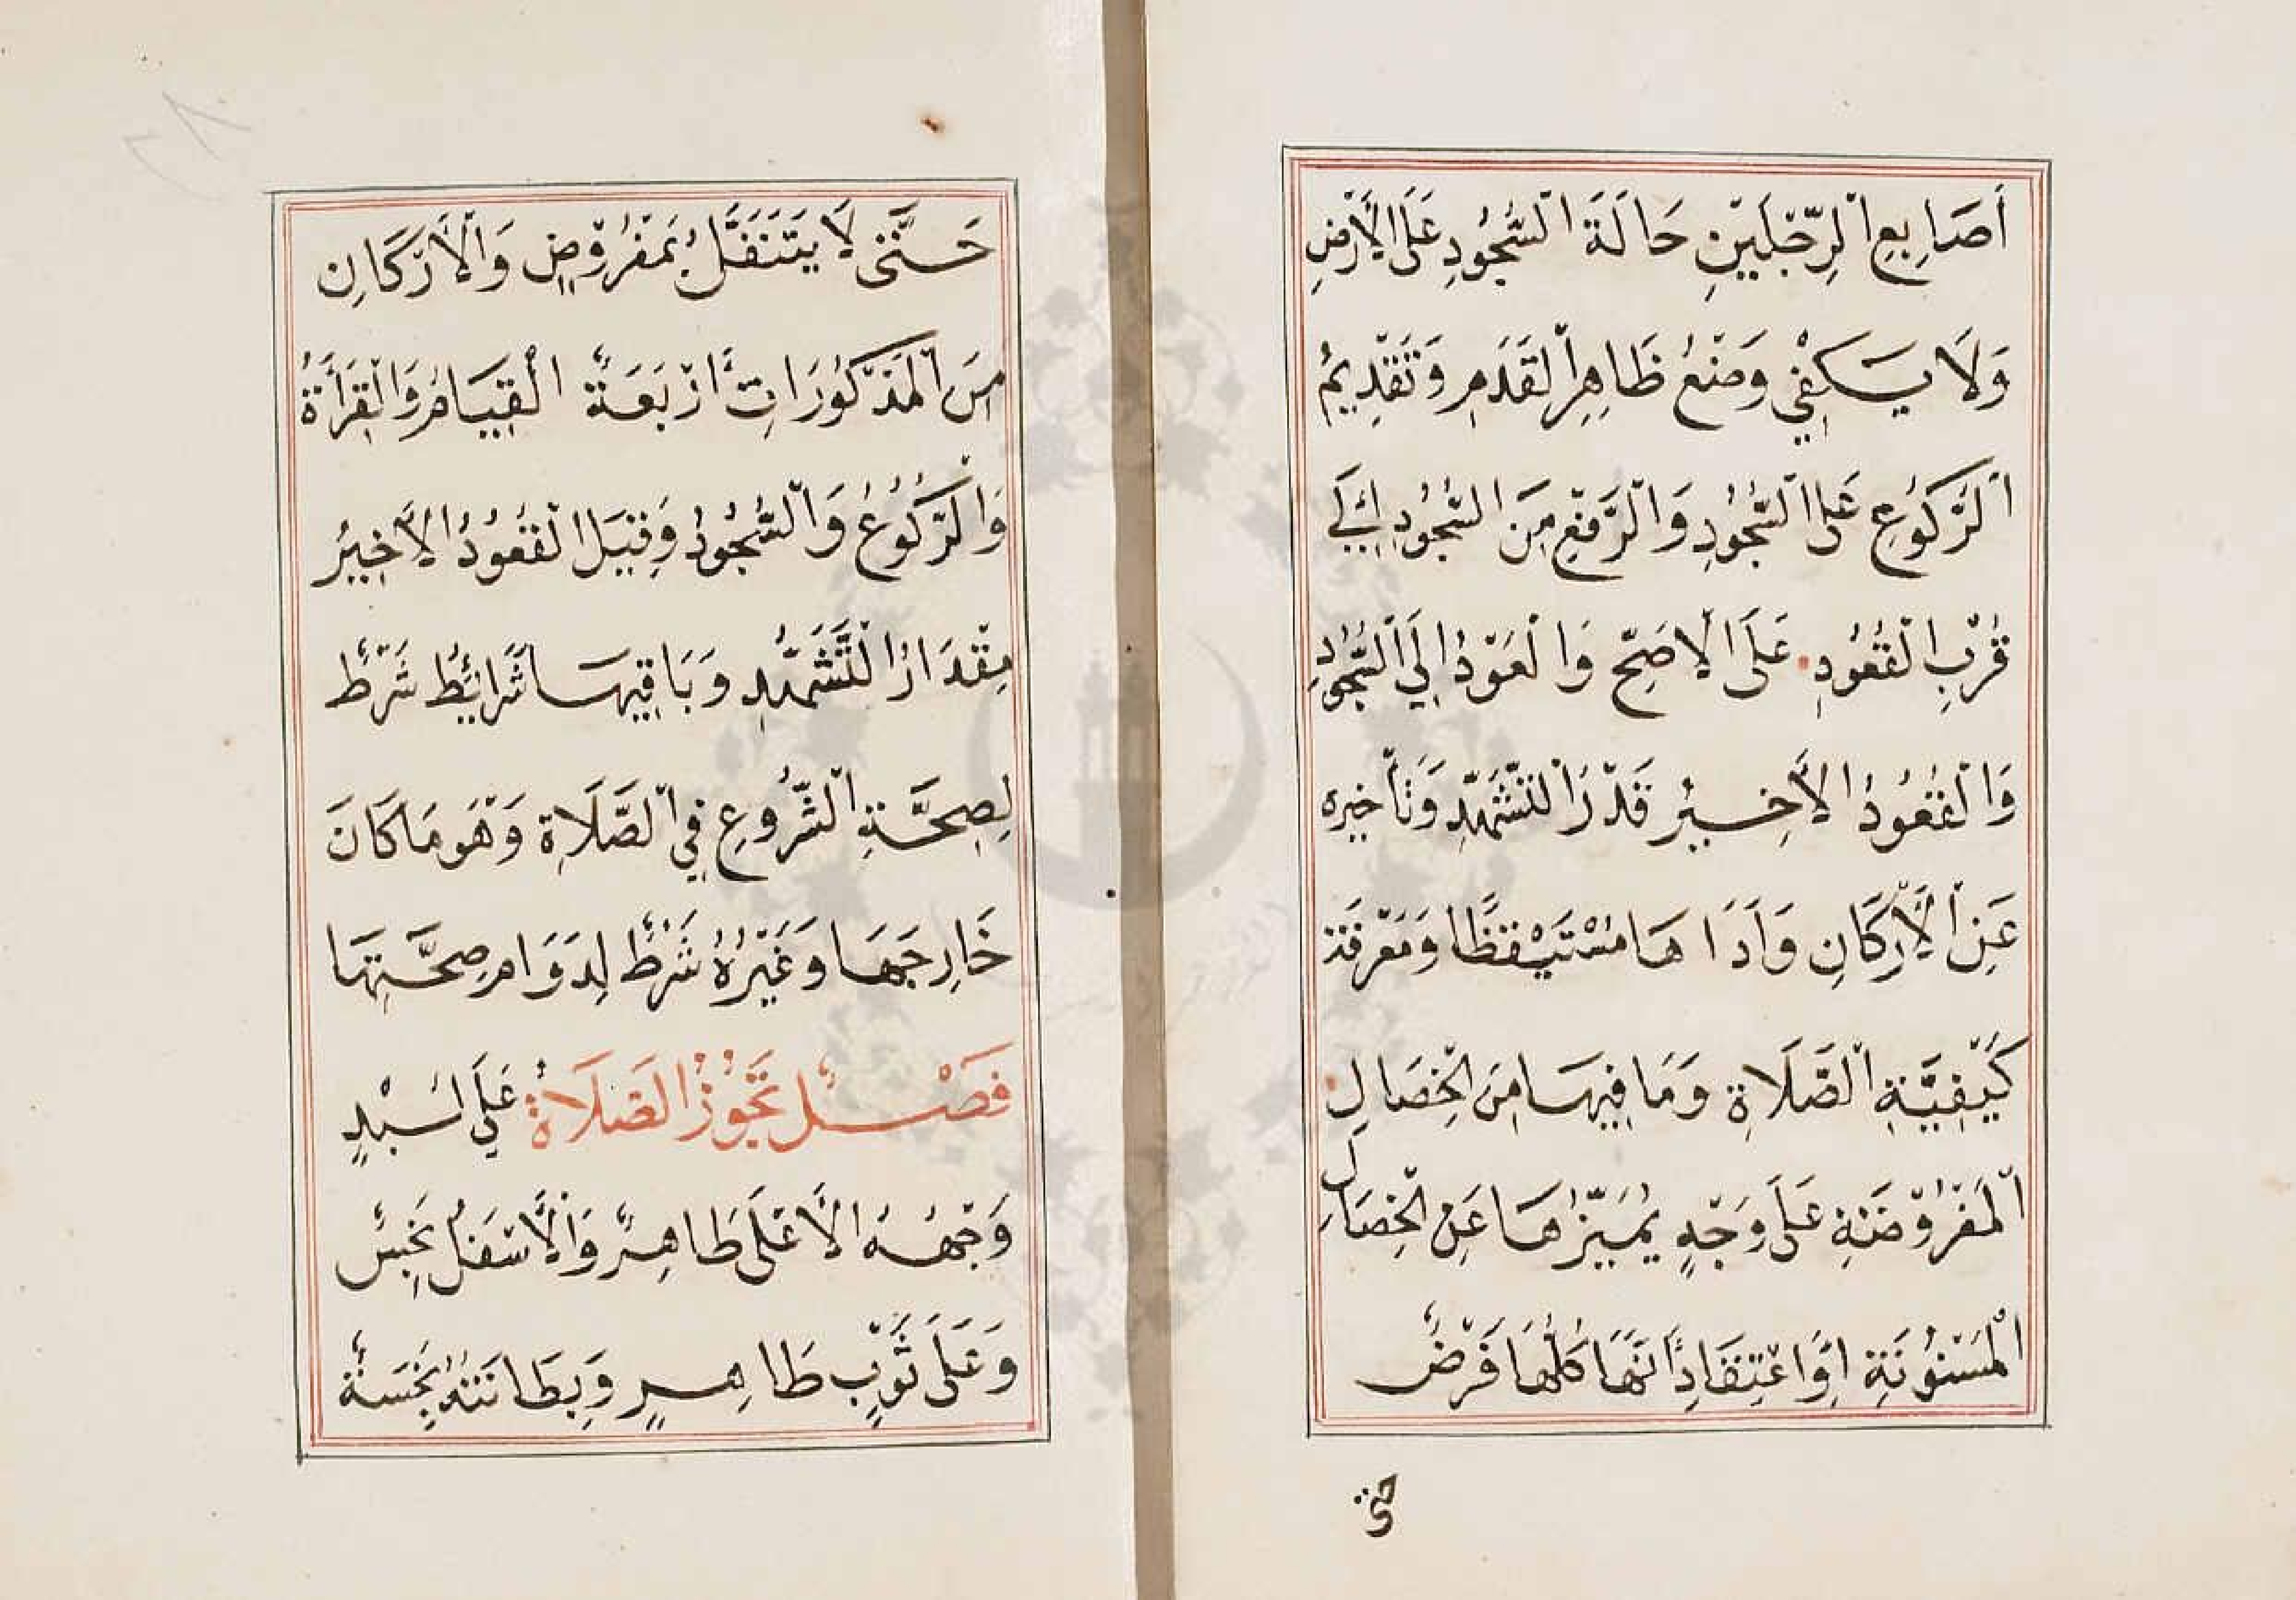 أَصَابِعِ الرِّجْلَيْنِ حَالَةَ السُّجُودِ عَلَى الْأَرْضِ
وَلَا يَكْفِي وَضْعُ ظَاهِرِ الْقَدَمِ وَتَقْدِيمُ
الرُّكُوعِ عَلَى السُّجُودِ وَالرَّفْعِ مِنَ السُّجُودِ إِلَى
قُرْبِ الْقُعُودِ عَلَى الْأَصَحِّ وَالْعَوْدُ إِلَى السُّجُودِ
وَالْقُعُودُ الْأَخِيرُ قَدْرَ التَّشَهُّدِ وَتَأْخِيره
عَنِ الْأَرْكَانِ وَأَدَاءهَا مُسْتَيْقِظًا وَمَعْرِفَة
كَيْفِيَّةِ الصَّلَاةِ وَمَا فِيهَا مِنَ الْخِصَالِ
الْمَفْرُوضَةِ عَلَى وَجْهٍ يُمَيِّزُهَا عَنِ الْخِصَالِ
الْمَسْنُونَةِ اوَاعْتِقَادِ أَنَّهَا كُلَّهَا فَرْضٌ
حتى
حَتَّى لَا يَتَنَفَّلُ بِمَفْرُوضٍ وَالْأَرْكَانِ
مِنَ الْمَذْكُورَاتِ أَرْبَعَةٌ الْقِيَامُ وَالْقِرَأَةُ
وَالرُّكُوعُ وَالسُّجُودُ وَقِيلَ الْقُعُودُ الْأَخِيرُ
مِقْدَارُ التَّشَهُّدِ وَبَاقِيهَا شَرَائِطُ شَرْطٌ
لِصِحَّةِ الشُّرُوعِ فِي الصَّلَاةِ وَهُوَ مَا كَانَ
خَارِجَهَا وَغَيْرُهُ شَرْطٌ لِدَوَامِ صِحَّتِهَا
فَصْلٌ تَجُوزُ الصَّلَاةُ عَلَى لَبْدٍ
وَجْهُهُ الْأَعْلَى طَاهِرٌ وَالْأَسْفَلُ نَجِسٌ
وَعَلَى ثَوْبٍ طَاهِرٍ وَبِطَانَتُهُ نَجِسَةٌ